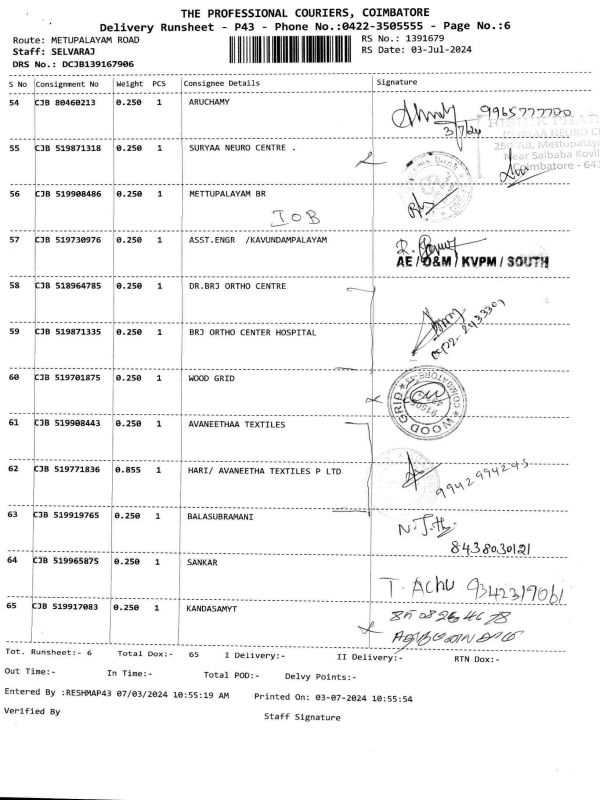 THE PROFESSIONAL COURIERS, COIMBATORE
Delivery Runsheet - P43 - Phone No.:0422-3505555 - Page No.:6
Route: METUPALAYAM ROAD
Staff: SELVARAJ
DRS No.: DCJB139167906
RS No.: 1391679
RS Date: 03-Jul-2024
S No Consignment No Weight PCS Consignee Details Signature
54 CJB 80460213 0.250 1 ARUCHAMY
9965777700
3/7/24
55 CJB 519871318 0.250 1 SURYAA NEURO CENTRE .
SURYAA NEURO CE
Mettupalaya
Near Saibaba Kovil
Coimbatore - 641
56 CJB 519908486 0.250 1 METTUPALAYAM BR
IOB
57 CJB 519730976 0.250 1 ASST.ENGR /KAVUNDAMPALAYAM
AE / O&M / KVPM / SOUTH
58 CJB 518964785 0.250 1 DR.BRJ ORTHO CENTRE
59 CJB 519871335 0.250 1 BRJ ORTHO CENTER HOSPITAL
0422-2433309
60 CJB 519701875 0.250 1 WOOD GRID
WOOD GRID
COIMBATORE
61 CJB 519908443 0.250 1 AVANEETHAA TEXTILES
62 CJB 519771836 0.855 1 HARI/ AVANEETHA TEXTILES P LTD
9942994243
63 CJB 519919765 0.250 1 BALASUBRAMANI
8438030121
64 CJB 519965875 0.250 1 SANKAR
T. Achu 9342319061
65 CJB 519917083 0.250 1 KANDASAMYT
Tot. Runsheet:- 6 Total Dox:- 65 I Delivery:- II Delivery:- RTN Dox:-
Out Time:- In Time:- Total POD:- Delvy Points:-
Entered By :RESHMAP43 07/03/2024 10:55:19 AM Printed On: 03-07-2024 10:55:54
Verified By Staff Signature